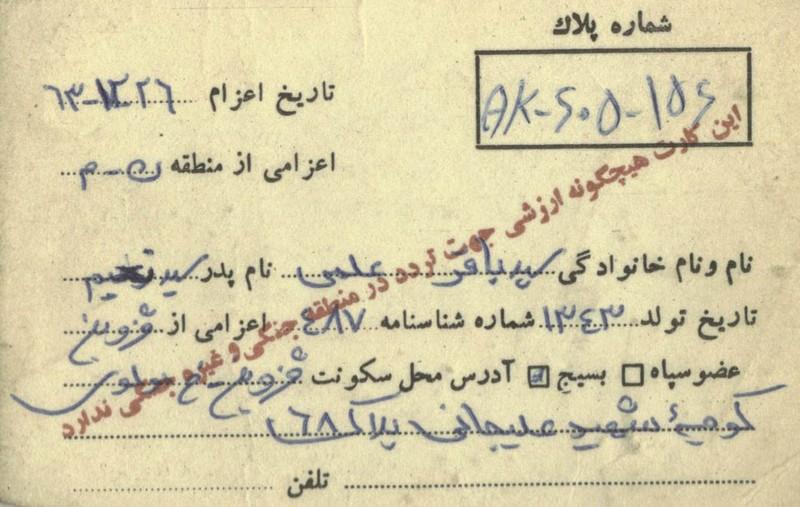 شماره پلاك
AK-605-156
تاریخ اعزام 63-12-26
اعزامی از منطقه ن-م
این کارت هیچگونه ارزشی جهت تردد در منطقه جنگی و غیره جنگی ندارد
نام ونام خانوادگی سید باقر علمی نام پدر سید
تاریخ تولد ۱۳٤۳ شماره شناسنامه ٤۸۷ اعزامی از قزوین
عضو سپاه □ بسیج ☑ آدرس محل سکونت قزوین-خ
کوچهٔ شهید علیجانی پلاک ۶۸
تلفن